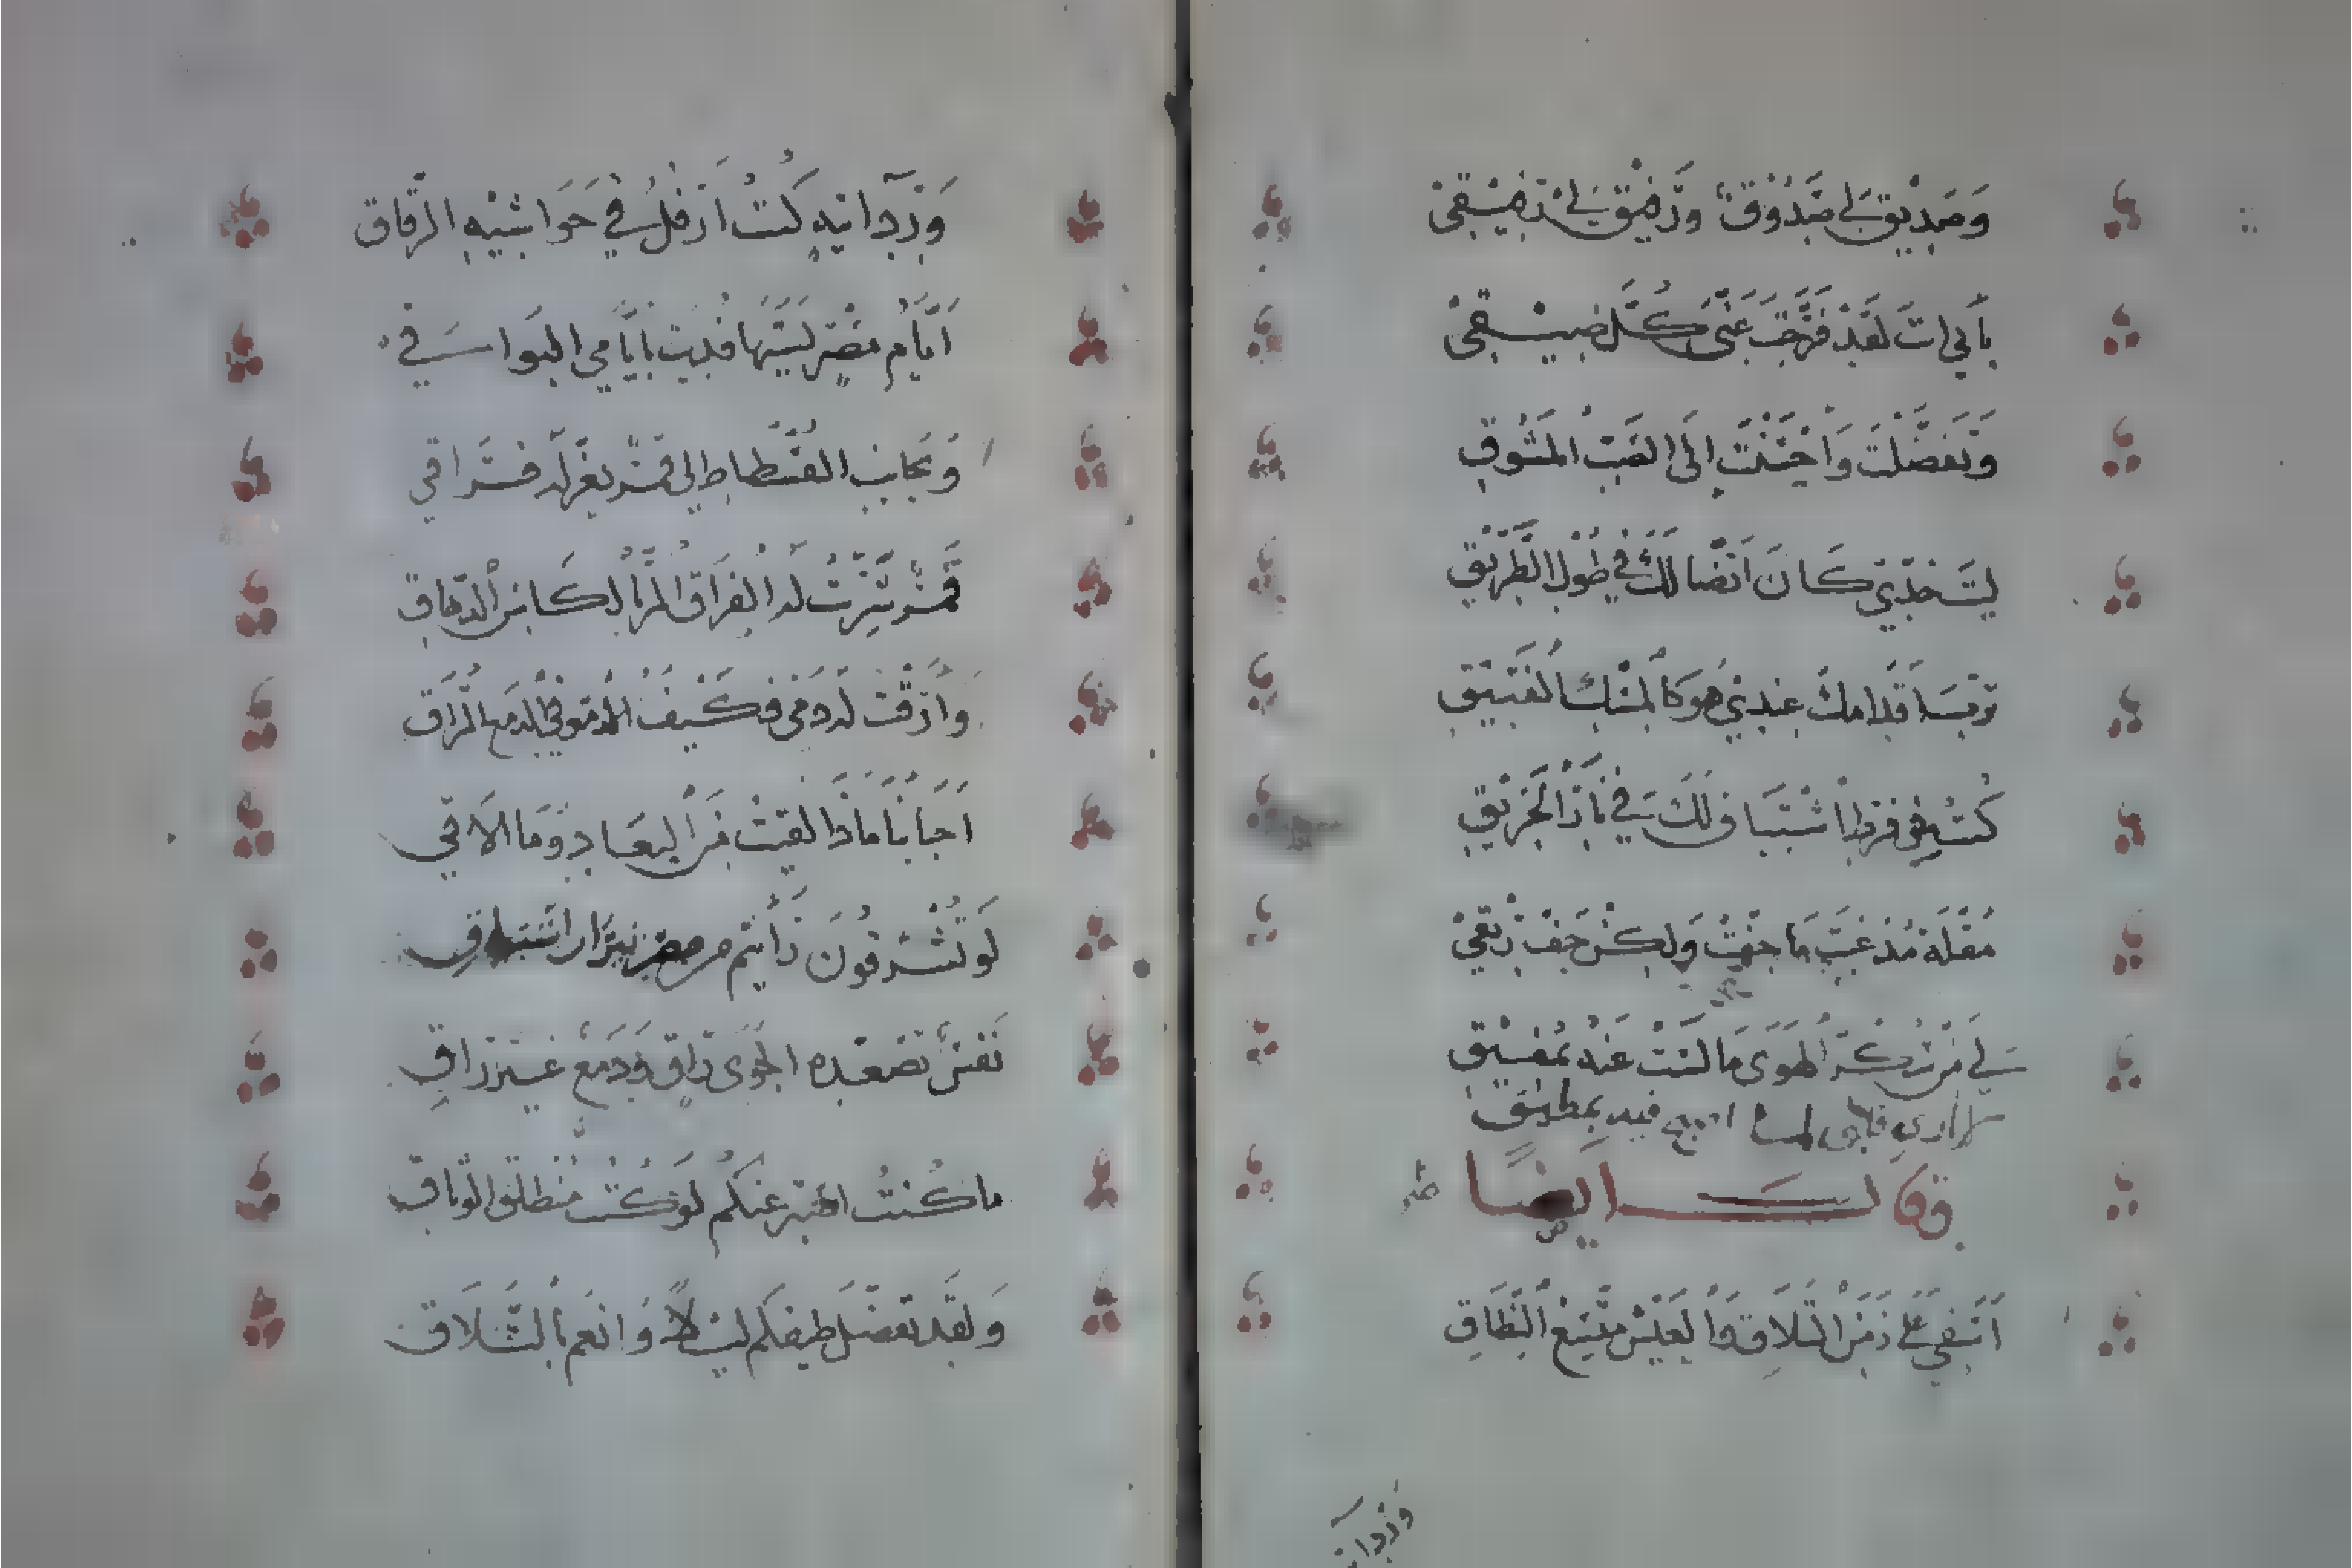 وَصَدِيْقٍ لِي صَدُوْقٍ وَرَفِيْقٍ لِيْ رَفِيْقِيْ
بِأَبِي انتَ لَقَدْ فَرَّجْتَ عَنِّي كُلَّ ضِيْقِيْ
وَتَفَضَّلْتَ وَاَحْسَنْتَ اِلَى الصَبِّ المَشُوقِ
لَيْتَ خَدِّيْ كَانَ اَرْضًا لَكَ فِي طُوْلِ الطَّرِيْقِ
تُرْبَ اَقْدَامِكَ عِنْدِيْ هُوَ كَالمِسْكِ الفَتِيْقِ
كُنْتُ مِنْ فَرْطِ اشْتِيَاقٍ لَكَ فِي نَارِ الحَرِيْقِ
مُقْلَةٌ مُذ غِبْتَ مَا جَفَّتْ وَلِكِنْ جَفَّ رِيْقِيْ
لِي مِنْ سُكْرِ الهَوَى مَا لَسْتُ عَنْهُ بمُفِيْقِ
فيه بمطيق
وقال ايضًا
اَسَفِي عَلَى زَمَنِ التَّلَاقِي وَالعَيْشِ مُتَّسِعُ النِّطَاقِ
وَرِدَا
وَرِدَآ انِهِ كُنْتُ اَرْفُلُ فِي حَوَاشِيْهِ الرِّقَاقِ
اَيَّامُ مِصْرٍ لَيْتَهَا فُدِيَت بِاَيَّامِي البَوَاقِي
وَبِجَانِبِ الفُسْطَاطِ لِي قَمَرٌ يَعِزُّ لَه فِرَاقِي
قَمَرٌ شَرِبْتُ لَه الفِرَاقَ المُرَّ بِالكَاسِ الدِّهَاقِ
وَاَرَقْتُ لَه دَمْعِي فَكَيْفَ الدمع المُرَاقِ
اَحْبَابَنَا مَاذَا لَقِيْتُ مِنَ البِعَادِ وَمَا اُلَاقِي
لَوْ تُشْرِفُونَ رَأَيْتُم مِن مِصْرَ نِيْرَانَ اشْتِيَاقِي
نَفَسٌ تُصَعِّدُه الجَوَى رَاقٍ وَدَمْعٌ غَيْرُ رَاقِ
مَا كُنْتُ اَصْبِرُ عَنْكُم لَوْ كُنْتُ مُنْطَلِقَ الوِثَاقِ
وَلَقَدْ تَفَضَّلَ طَيْفُكُم لَيْلاً وَاَنْعَمَ بِالتَّلَاقِ